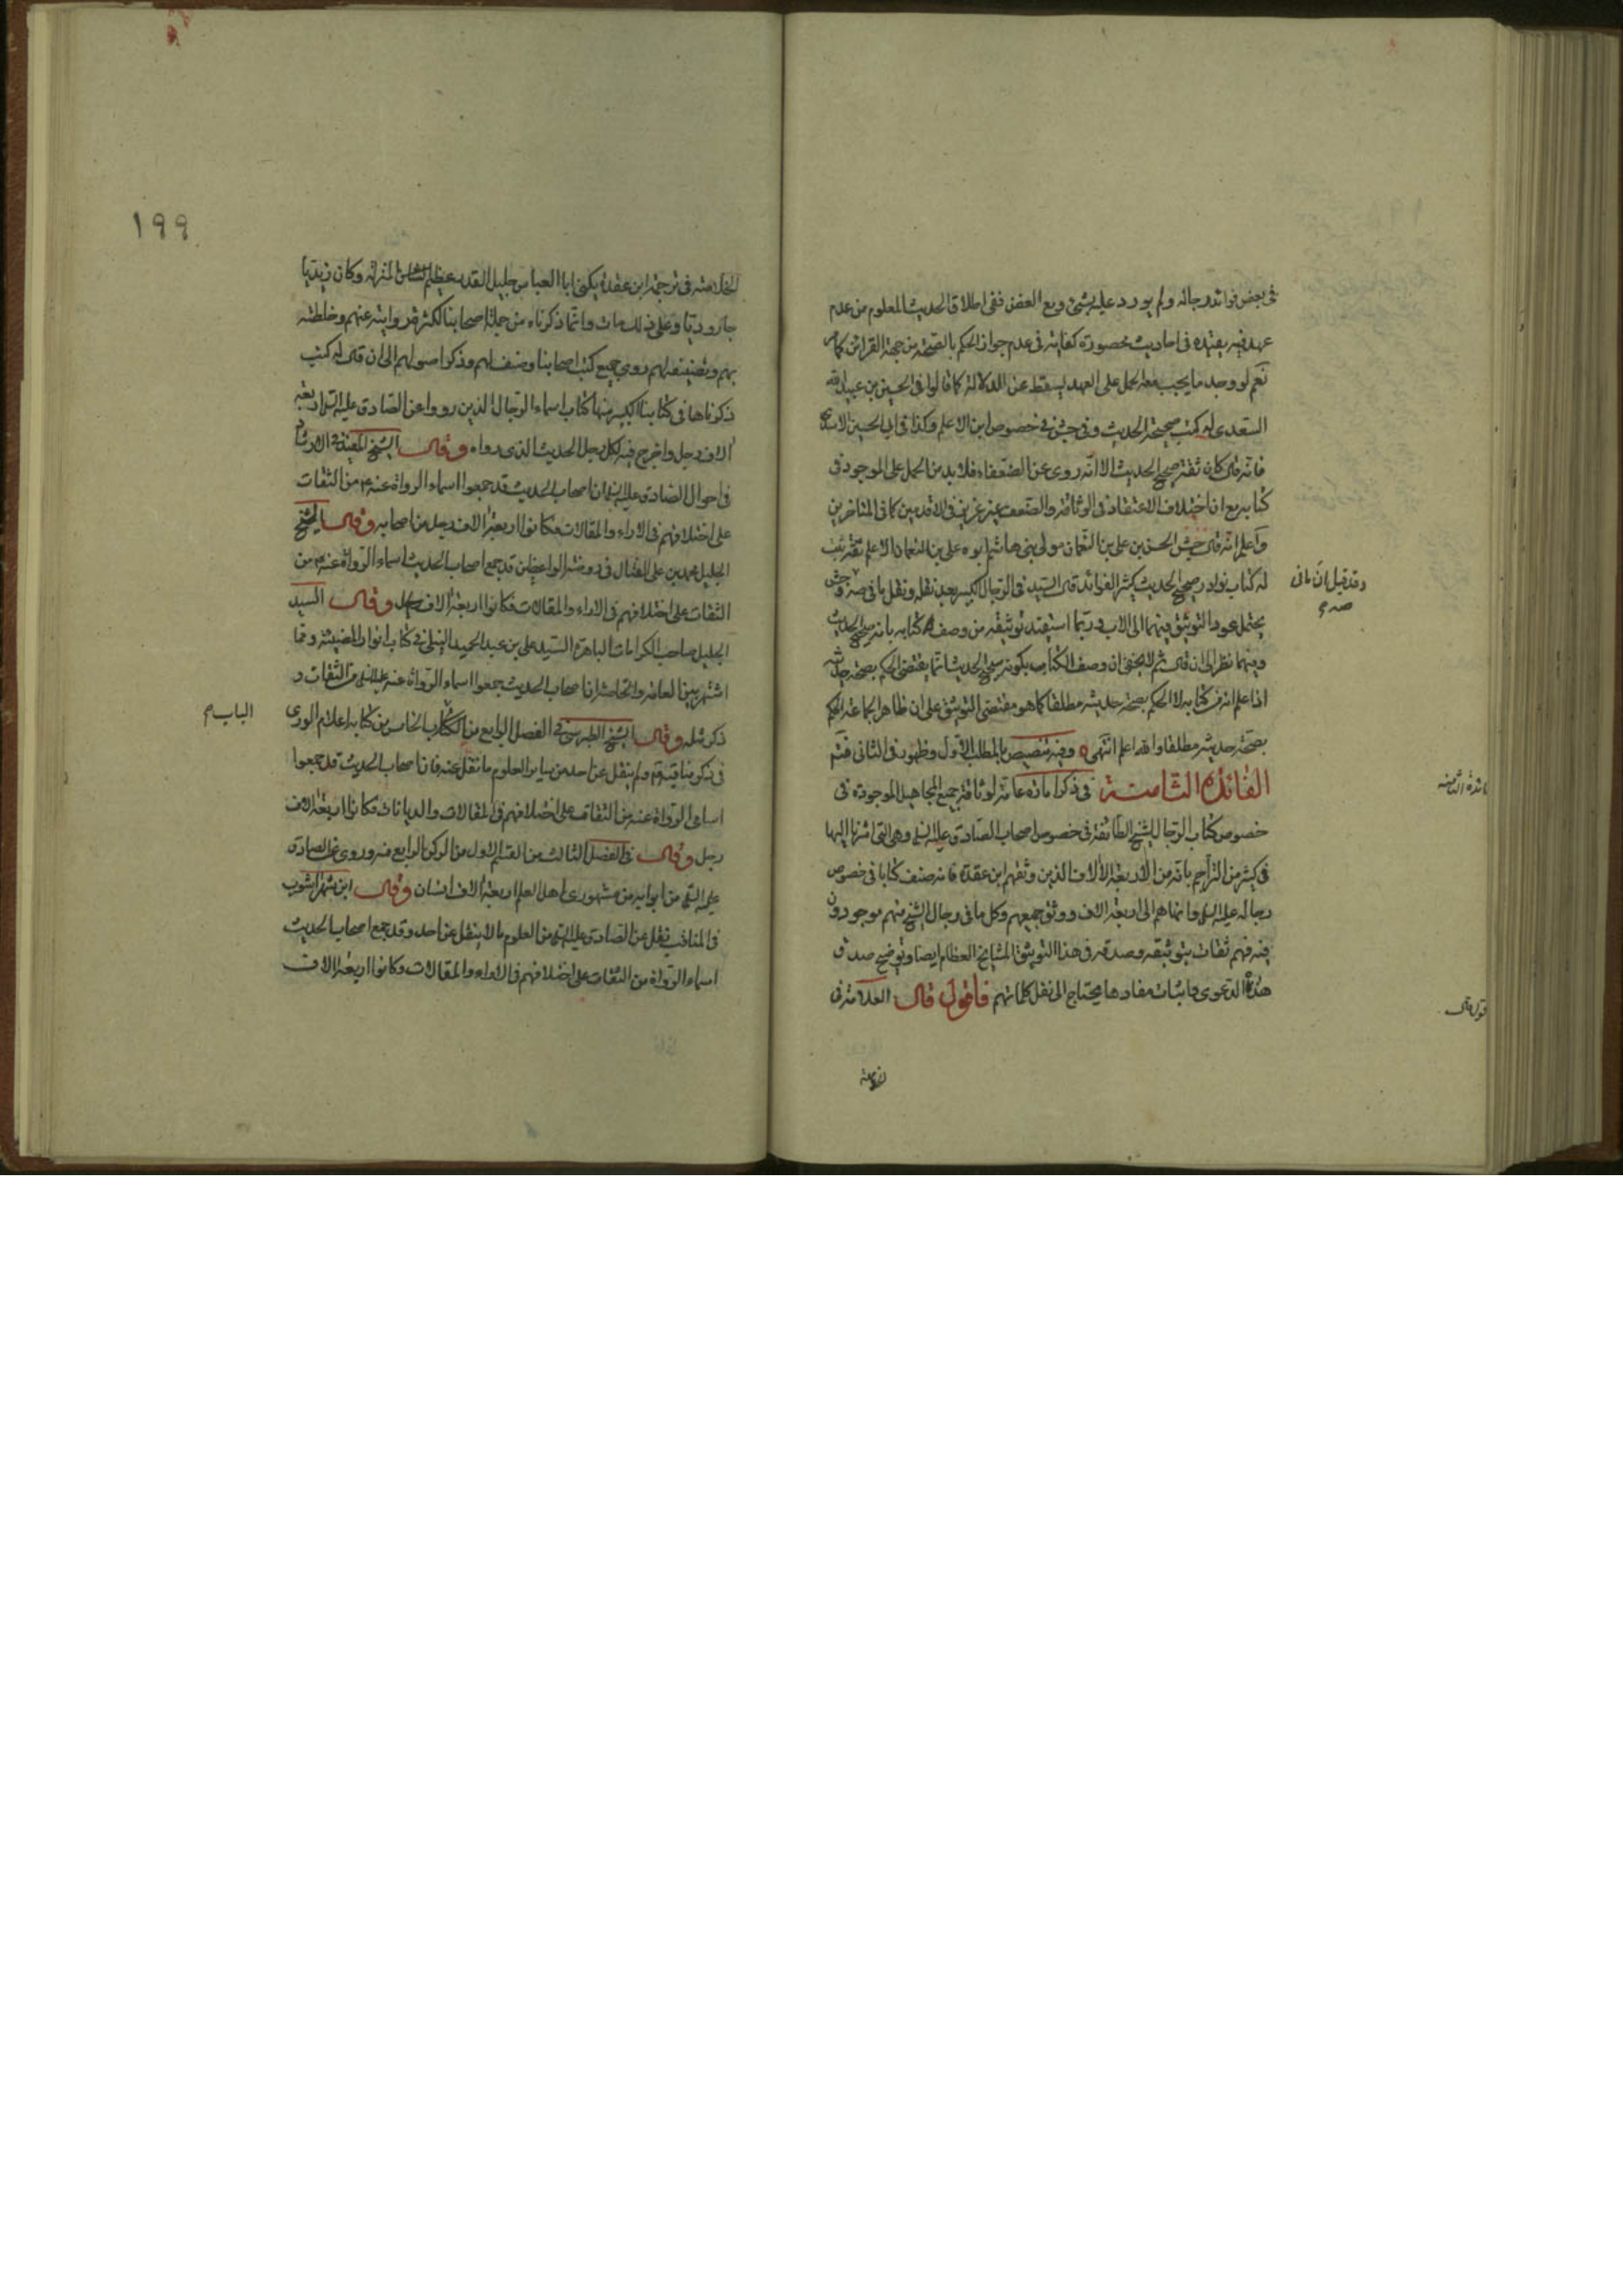 في بعض فوائد رجاله ولم يورد عليه بشئ ومع الغض ففي اطلاق الحديث المعلوم من عدم
عهد فيه يقيده في احاديث محصورة كفاية في عدم جواز الحكم بالصحة من جهة القرائن كما
نعم لو وجد ما يجب معه الحمل على العهد لسقط عن الدلالة كما قالوا في الحسين بن عبيد الله
السعدي له كتب صحيحة الحديث وفي جش في خصوص ابن الاعلم وكذا في ابي الحسين الاسدي
فانه قال كان ثقة صحيح الحديث الا انه روى عن الضعفاء فلا بد من الحمل على الموجود في
كتابه مع ان اختلاف الاعتقاد في الوثاقة والضعف غير عزيز في الاقدمين كما في المتاخرين
واعلم انه قال جش الحسن بن علي بن النعمان مولى بني هاشم ابوه علي بن النعمان الاعلم ثقة ثبت
له كتاب نوادر صحيح الحديث كثير الفوائد قال السيد في الرجال الكبير بعد نقله ونقل ما في صه وجش
يحتمل عود التوثيق فيهما الى الاب وربما استفيد توثيقه من وصف كتابه بانه صحيح الحديث
وفيهما نظر الى ان قال ثم لا يخفى ان وصف الكتاب بكونه صحيح الحديث انما يقتضي الحكم بصحة حديثه
اذا علم انه من كتابه لا الحكم بصحة حديثه مطلقا كما هو مقتضى التوثيق على ان ظاهر الجماعة الحكم
بصحة حديثه مطلقا والله اعلم انتهى وفيه تنصيص بالمطلب الاول وظهور في الثاني فتم
الفائدة الثامنة في ذكر امارة عامة لوثاقة جميع المجاهيل الموجودة في
خصوص كتاب الرجال لشيخ الطائفة في خصوص اصحاب الصادق عليه السلم وهي التي اشرنا اليها
في كثير من التراجم بانه من الاربعة الآلاف الذين وثقهم ابن عقدة فانه صنف كتابا في خصوص
رجاله عليه السلم وانهاهم الى اربعة الاف ووثق جميعهم وكل ما في رجال الشيخ منهم موجودون
فيه فهم ثقات بتوثيقه وصدقه في هذا التوثيق المشايخ العظام ايضا وتوضيح صدق
هذه الدعوى واثبات مفادها يحتاج الى نقل كلماتهم فاقول قال العلامة في
وقد قيل ان ما في
صه
الفائدة الثامنة
قول قال
الخلاصة
١٩٩
الخلاصة في ترجمة ابن عقدة يكنى ابا العباس جليل القدر عظيم الشان المنزلة وكان زيديا
جاروديا وعلى ذلك مات وانما ذكرناه من جملة اصحابنا لكثرة روايته عنهم وخلطته
بهم وتصنيفه لهم روى جميع كتب اصحابنا وصنف لهم وذكر اصولهم الى ان قال له كتب
ذكرناها في كتابنا الكبير منها كتاب اسماء الرجال الذين رووا عن الصادق عليه السلم اربعة
الاف رجل واخرج فيه لكل رجل الحديث الذي رواه وقال الشيخ المفيد في الارشاد
في احوال الصادق عليه السلم ان اصحاب الحديث قد جمعوا اسماء الرواة عنه من الثقات
على اختلافهم في الاراء والمقالات فكانوا اربعة الاف رجل من اصحابه وقال الشيخ
الجليل محمد بن علي الفتال في روضة الواعظين قد جمع اصحاب الحديث اسماء الرواة عنه من
الثقات على اختلافهم في الاراء والمقالات فكانوا اربعة الاف رجل وقال السيد
الجليل صاحب الكرامات الباهرة السيد علي بن عبد الحميد النيلي في كتاب انوار المضيئة ومما
اشتهر بين العامة والخاصة ان اصحاب الحديث جمعوا اسماء الرواة عنه عليه السلم من الثقات و
ذكر مثله وقال الشيخ الطبرسي في الفصل الرابع من الكتاب الخامس من كتابه اعلام الورى
في ذكر مناقبه ولم ينقل عن احد من سائر العلوم ما نقل عنه فان اصحاب الحديث قد جمعوا
اسامي الرواة عنه من الثقات على اختلافهم في المقالات والديانات فكانوا اربعة الاف
رجل وقال في الفصل الثالث من القسم الاول من الركن الرابع منه وروى عن الصادق
عليه السلم من ابوابه من مشهوري اهل العلم اربعة الاف انسان وقال ابن شهراشوب
في المناقب نقل عن الصادق عليه السلم من العلوم ما لا ينقل عن احد وقد جمع اصحاب الحديث
اسماء الرواة من الثقات على اختلافهم في الاراء والمقالات وكانوا اربعة الاف
الباب